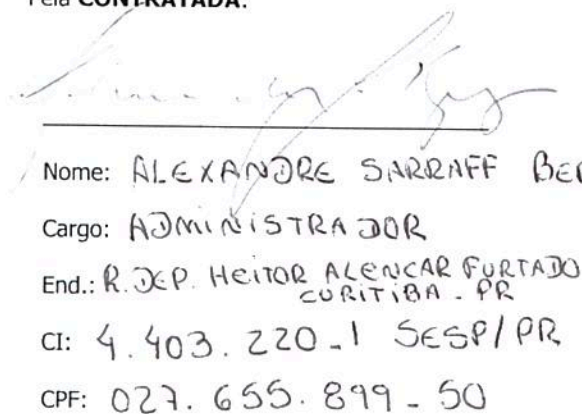 Pela CONTRATADA:
Nome: ALEXANDRE SARRAFF BE
Cargo: ADMINISTRADOR
End.: R. DEP. HEITOR ALENCAR FURTADO
CURITIBA - PR
CI: 4.403.220-1 SESP/PR
CPF: 027.655.899-50